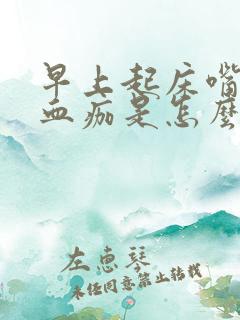 早上起床嘴
血痂是怎么
左惠琴
未经同意禁止转载